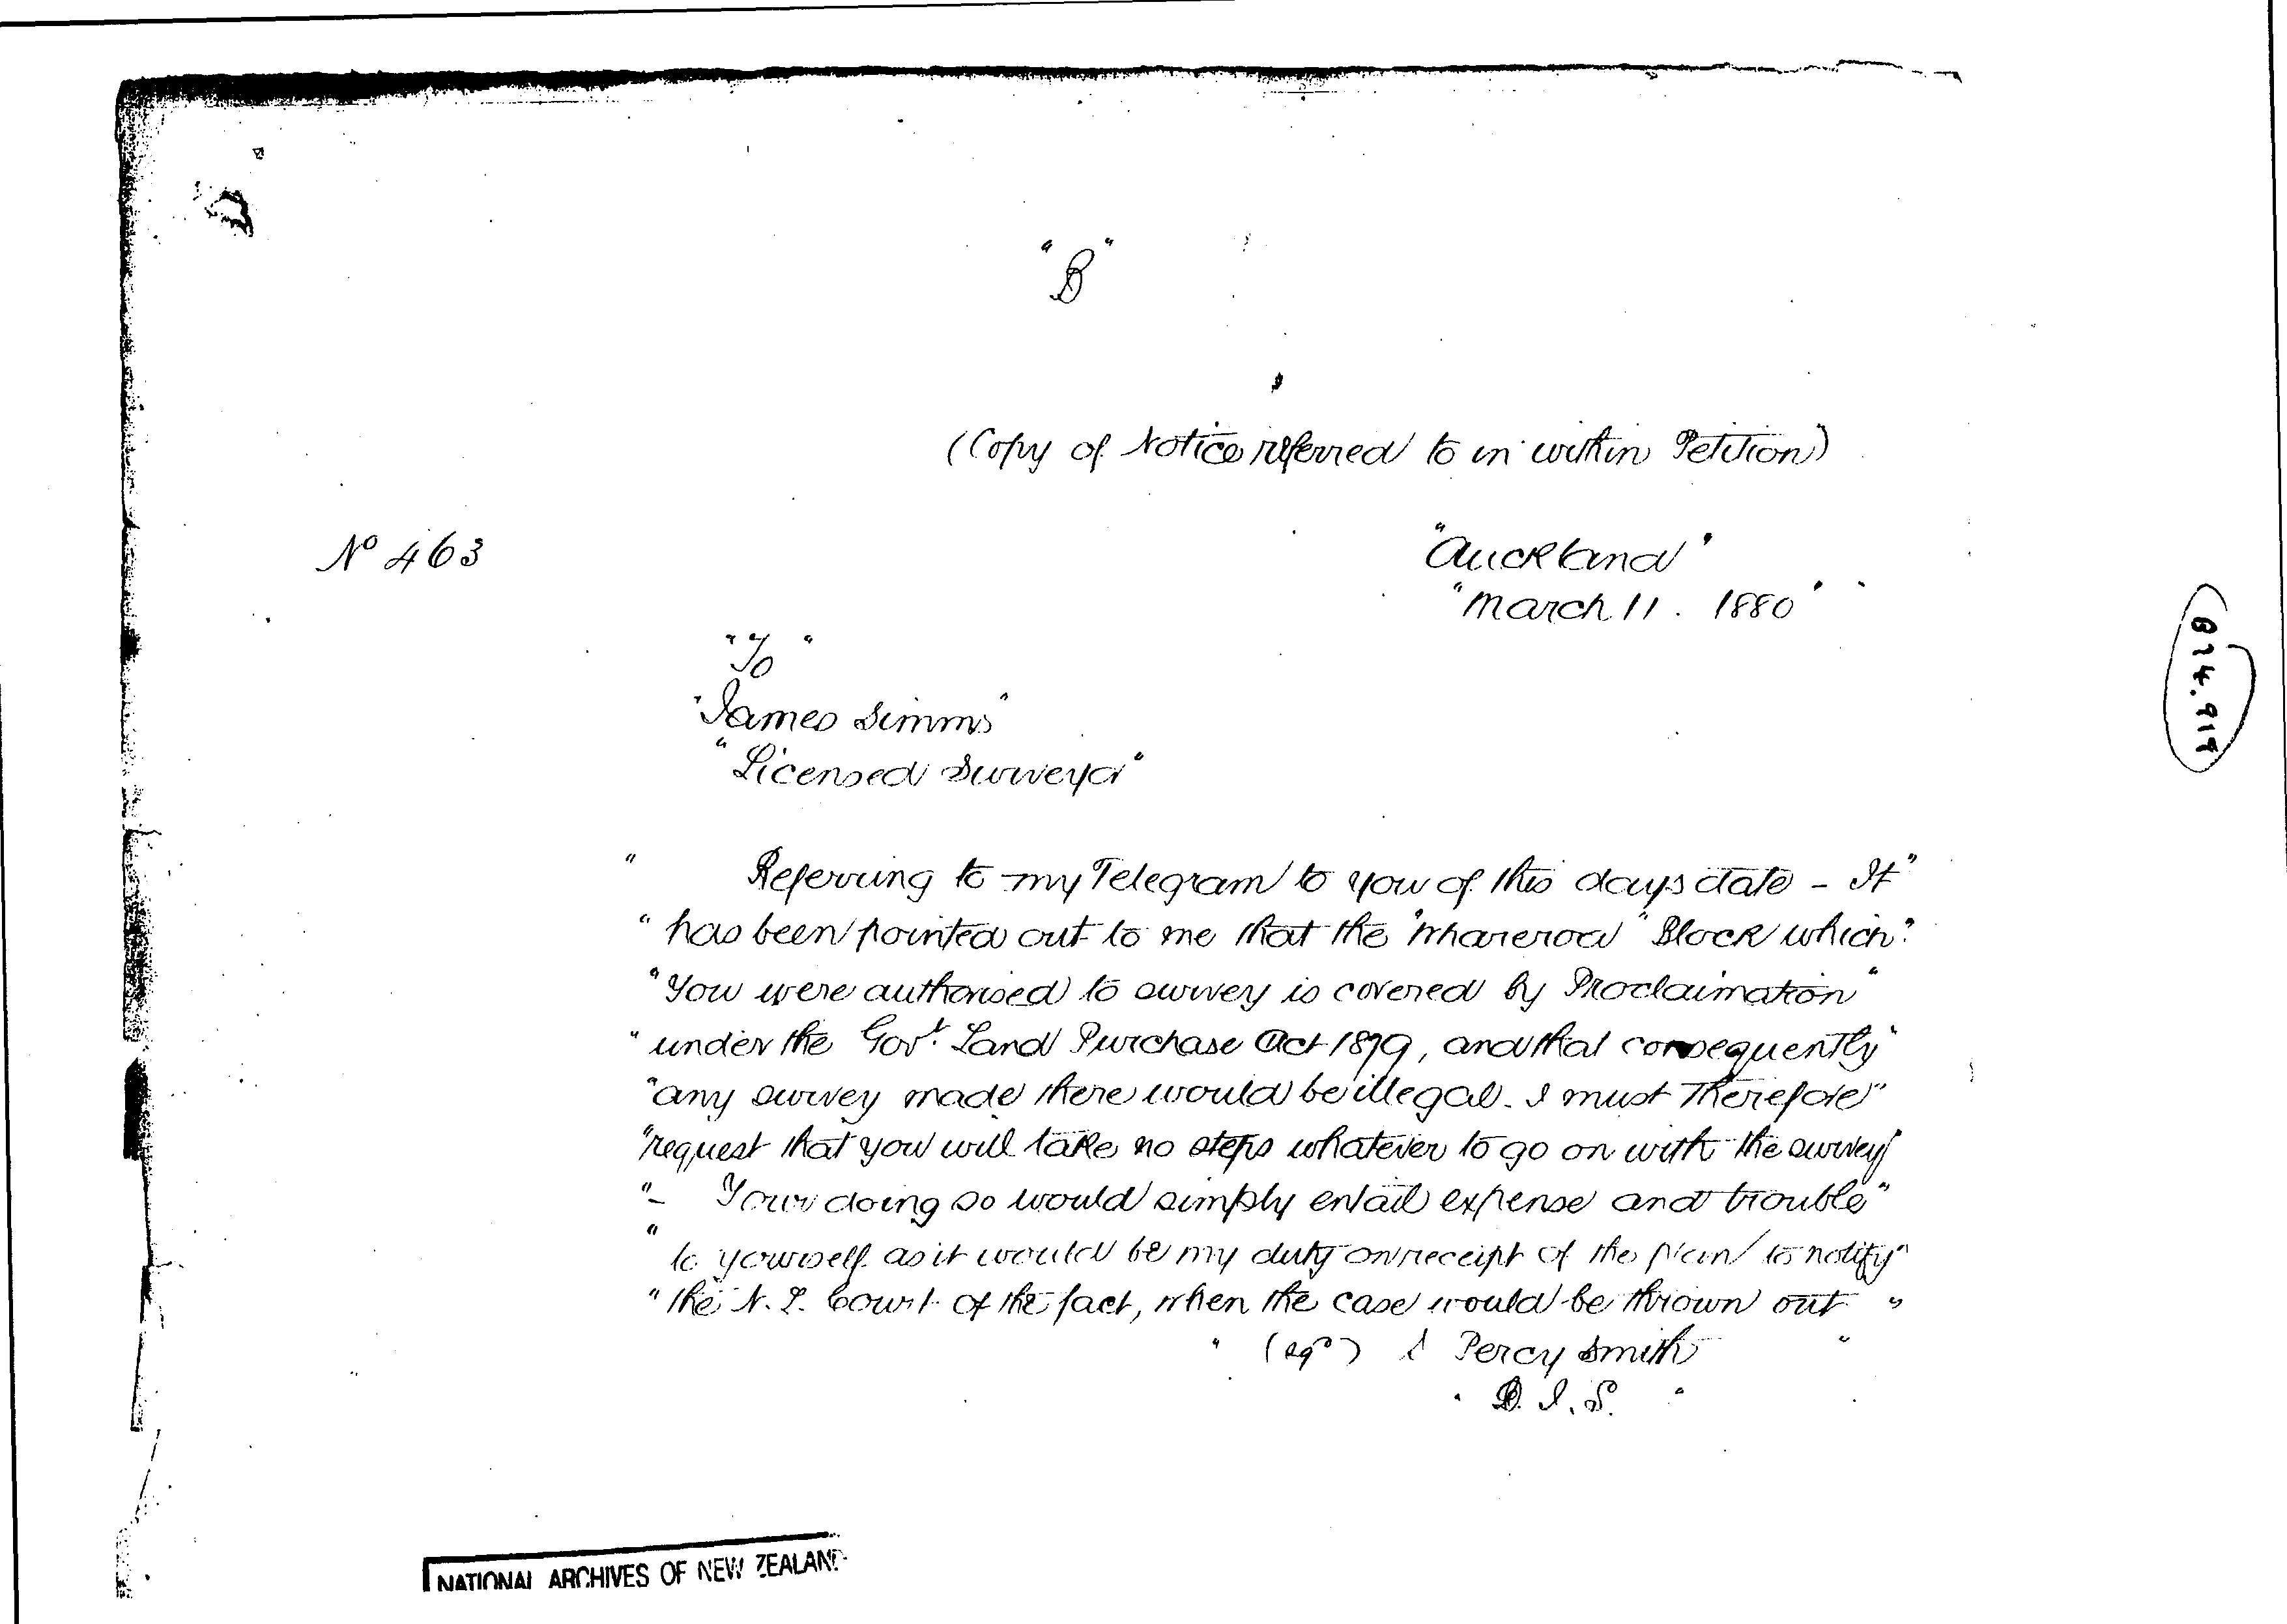 "B"
(Copy of Notice referred to in within Petition)
Nº 463
"Auckland"
"March 11. 1880"
"To"
"James Simms"
"Licensed Surveyor"
" Referring to my Telegram to you of this days date - It"
"has been pointed out to me that the "Whareroa" Block which"
"You were authorised to survey is covered by Proclaimation"
"under the Govt. Land Purchase Act 1879, and that consequently"
"any survey made there would be illegal. I must Therefore"
"request that you will take no steps whatever to go on with the survey"
"- Your doing so would simply entail expense and trouble"
"to yourself as it would be my duty on receipt of the plan to notify"
"the N. L. Court of the fact, when the case would be thrown out"
"(sgd) S Percy Smith"
"D. I. S."
NATIONAL ARCHIVES OF NEW ZEALAND